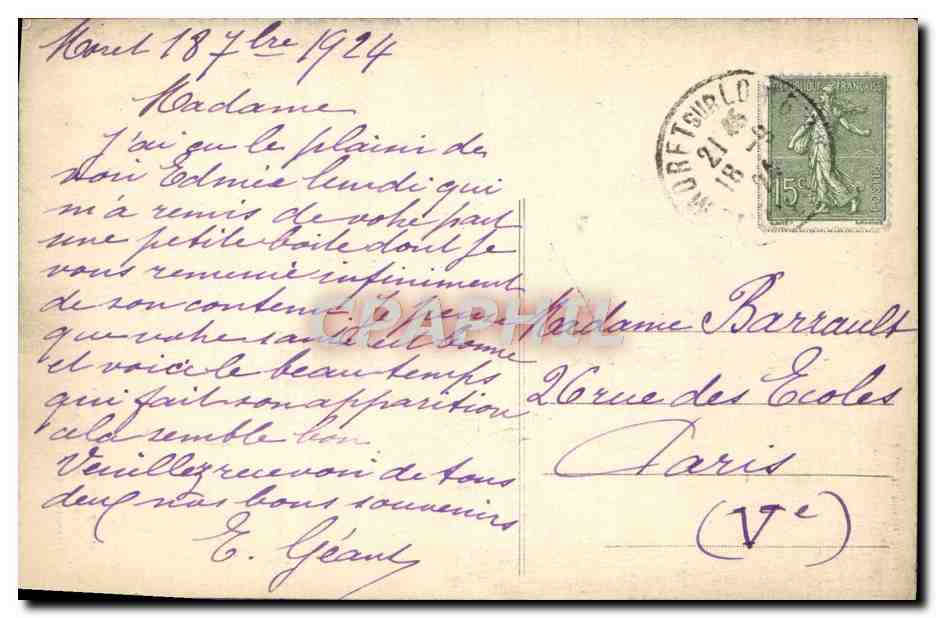 Moret 18 7bre 1924
Madame
J'ai eu le plaisir de
voir Edmée lundi qui
m'a remis de votre part
une petite boite dont je
vous remercie infiniment
de son contenu. Je pense
que votre santé est bonne
et voici le beau temps
qui fait son apparition
cela semble bon
Veuillez recevoir de tous
deux nos bons souvenirs
E. Géant
MORET SUR LOING
21
18
REPUBLIQUE FRANÇAISE
15c
POSTES
CPAPHIL
Madame Barrault
26 rue des Ecoles
Paris
(Ve)